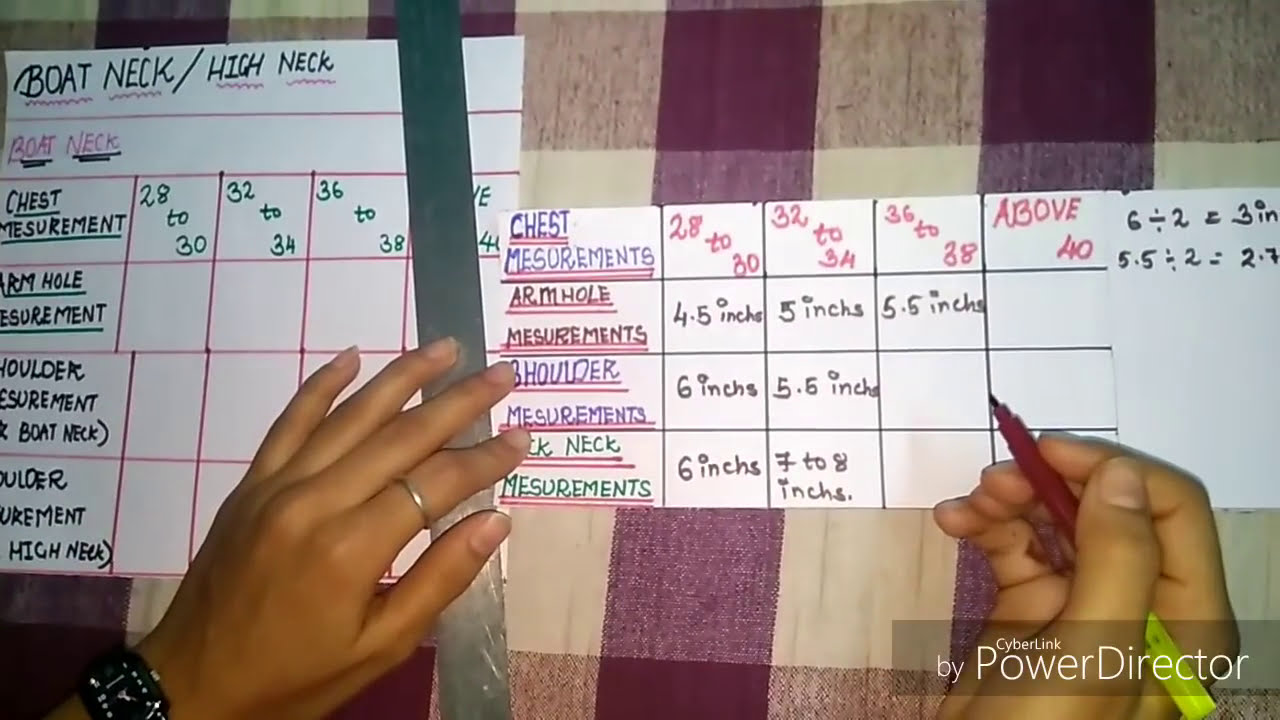 BOAT NECK / HIGH NECK
BOAT NECK
CHEST
MESUREMENT
28
to
30
32
to
34
36
to
38
ARM HOLE
MESUREMENT
BOAT NECK)
HIGH NECK)
CHEST
MESUREMENTS
28
to
30
32
to
34
36
to
38
ABOVE
40
ARMHOLE
MESUREMENTS
4.5 inchs
5 inchs
5.5 inchs
SHOULDER
MESUREMENTS
6 inchs
5.5 inchs
NECK
MESUREMENTS
6 inchs
7 to 8
inchs.
6 ÷ 2 = 3
5.5 ÷ 2 =
CyberLink
by PowerDirector